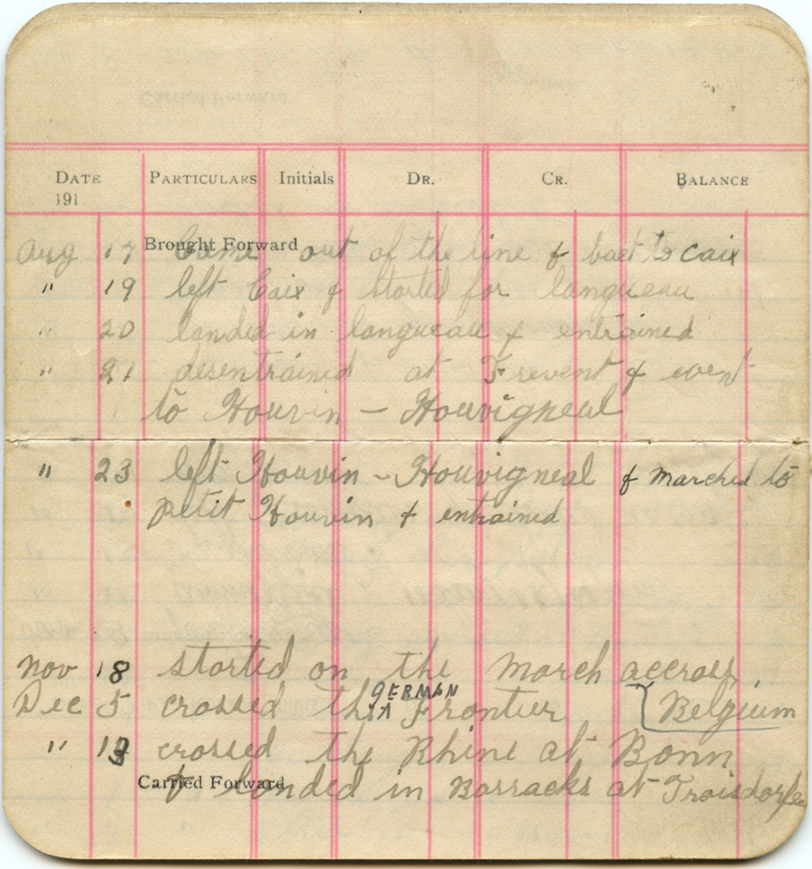 DATE 191 PARTICULARS Initials DR. CR. BALANCE
Brought Forward
Aug 17 Came out of the line & back to Caix
" 19 left Caix & started for langueau
" 20 landed in langueau & entrained
" 21 desentrained at Frevent & went
to Houvin - Houvigneal
" 23 left Houvin - Houvigneal & marched to
petit Houvin & entrained
Nov 18 started on the march accross
Belgium
Dec 5 crossed the GERMAN Frontier
" 13 crossed the Rhine at Bonn
Carried Forward
& landed in Barracks at Troisdorf